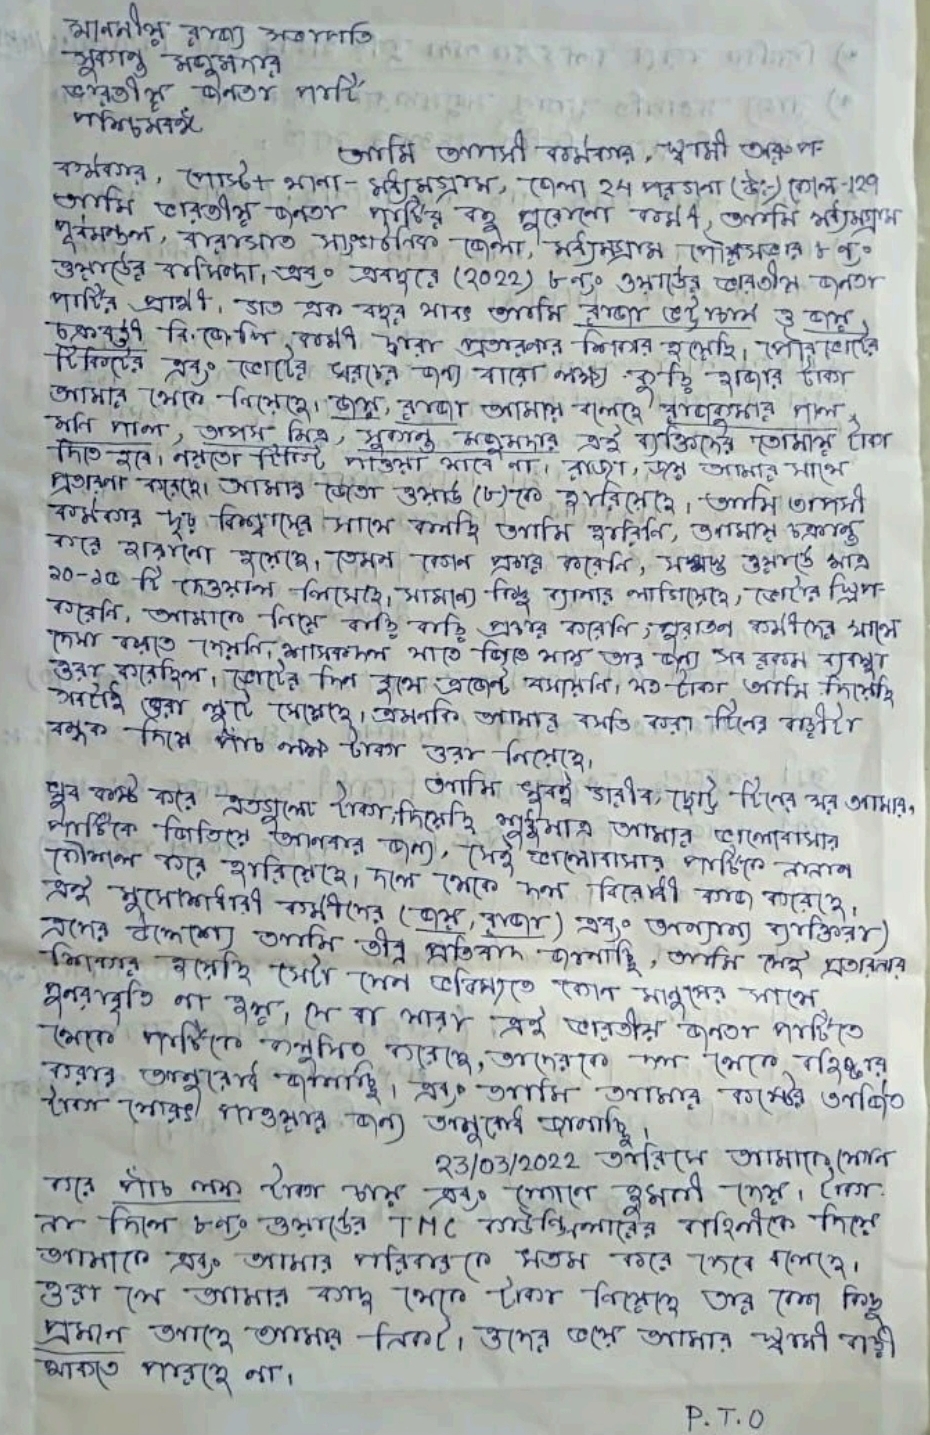 মাননীয় রাজ্য সভাপতি
সুকান্ত মজুমদার
ভারতীয় জনতা পার্টি
পশ্চিমবঙ্গ
আমি তাপসী কর্মকার, স্বামী অরূপ
কর্মকার, পোস্ট+থানা-মধ্যমগ্রাম, জেলা 24 পরগনা (উঃ) কোল-129
আমি ভারতীয় জনতা পার্টির বহু পুরোনো কর্মী, আমি মধ্যমগ্রাম
পূর্বমন্ডল, বারাসাত সাংগঠনিক জেলা, মধ্যমগ্রাম পৌরসভার ৮ নং
ওয়ার্ডের বাসিন্দা, এবং এবছরে (2022) ৮ নং ওয়ার্ডের ভারতীয় জনতা
পার্টির প্রার্থী, গত এক বছর যাবৎ আমি রাজা ভট্টাচার্য ও জয়
চক্রবর্তী বি.জে.পি কর্মী দ্বারা প্রতারনার শিকার হয়েছি, পৌরভোটের
টিকিটের এবং ভোটের খরচের জন্য বারো লক্ষ্য কুড়ি হাজার টাকা
আমার থেকে নিয়েছে। জয়, রাজা আমায় বলেছে রাজকুমার পাল,
মনি পাল, তাপস মিত্র, সুকান্ত মজুমদার এই ব্যক্তিদের তোমায় টাকা
দিতে হবে। নয়তো টিকিট পাওয়া যাবে না। রাজা, জয় আমার সাথে
প্রতারনা করেছে। আমার জেতা ওয়ার্ড (৮)কে হারিয়েছে। আমি তাপসী
কর্মকার দৃঢ় বিশ্বাসের সাথে বলছি আমি হারিনি, আমায় চক্রান্ত
করে হারানো হয়েছে, তেমন কোন প্রচার করেনি, সমস্ত ওয়ার্ডে মাত্র
২০-২৫ টি দেওয়াল লিখেছে, সামান্য কিছু ব্যানার লাগিয়েছে, ভোটের স্লিপ
করেনি, আমাকে নিয়ে বাড়ি বাড়ি প্রচার করেনি, পুরাতন কর্মীদের সাথে
দেখা করতে দেয়নি, শাসকদল যাতে জিতে যায় তার জন্য সব রকম ব্যবস্থা
ওরা করেছিল। ভোটের দিন বুথে এজেন্ট বসায়নি, যত টাকা আমি দিয়েছি
সবটাই ওরা লুটে খেয়েছে, এমনকি আমার বসতি করা টিনের বাড়ীটা
বন্ধক দিয়ে পাঁচ লক্ষ টাকা ওরা নিয়েছে,
আমি খুবই গরীব, ছোট টিনের ঘর আমার,
খুব কষ্ট করে এতগুলো টাকা দিয়েছি শুধুমাত্র আমার ভালোবাসার
পার্টিকে জিতিয়ে আনবার জন্য, সেই ভালোবাসার পার্টিকে নানান
কৌশল করে হারিয়েছে, দলে থেকে দল বিরোধী কাজ করেছে,
এই মুখোশধারী কর্মীদের (জয়, রাজা) এবং অন্যান্য ব্যক্তিরা)
এদের উদ্দেশ্যে আমি তীব্র প্রতিবাদ জানাচ্ছি, আমি যেই প্রতারনার
শিকার হয়েছি সেটা যেন ভবিষ্যতে কোন মানুষের সাথে
পুনরাবৃতি না হয়, যে বা যারা এই ভারতীয় জনতা পার্টিতে
থেকে পার্টিকে কলুষিত করেছে, তাদেরকে দল থেকে বহিষ্কার
করার অনুরোধ জানাচ্ছি। এবং আমি আমার কষ্টের অর্জিত
টাকা ফেরৎ পাওয়ার জন্য অনুরোধ জানাচ্ছি।
23/03/2022 তারিখে আমাকে ফোন
করে পাঁচ লক্ষ টাকা চায় এবং ফোনে হুমকী দেয়। টাকা
না দিলে ৮ নং ওয়ার্ডের TMC কাউন্সিলারের বাহিনীকে দিয়ে
আমাকে এবং আমার পরিবারকে খতম করে দেবে বলেছে।
ওরা যে আমার কাছ থেকে টাকা নিয়েছে তার বেশ কিছু
প্রমান আছে আমার নিকট। ওদের ভয়ে আমার স্বামী বাড়ী
থাকতে পারছে না।
P.T.O